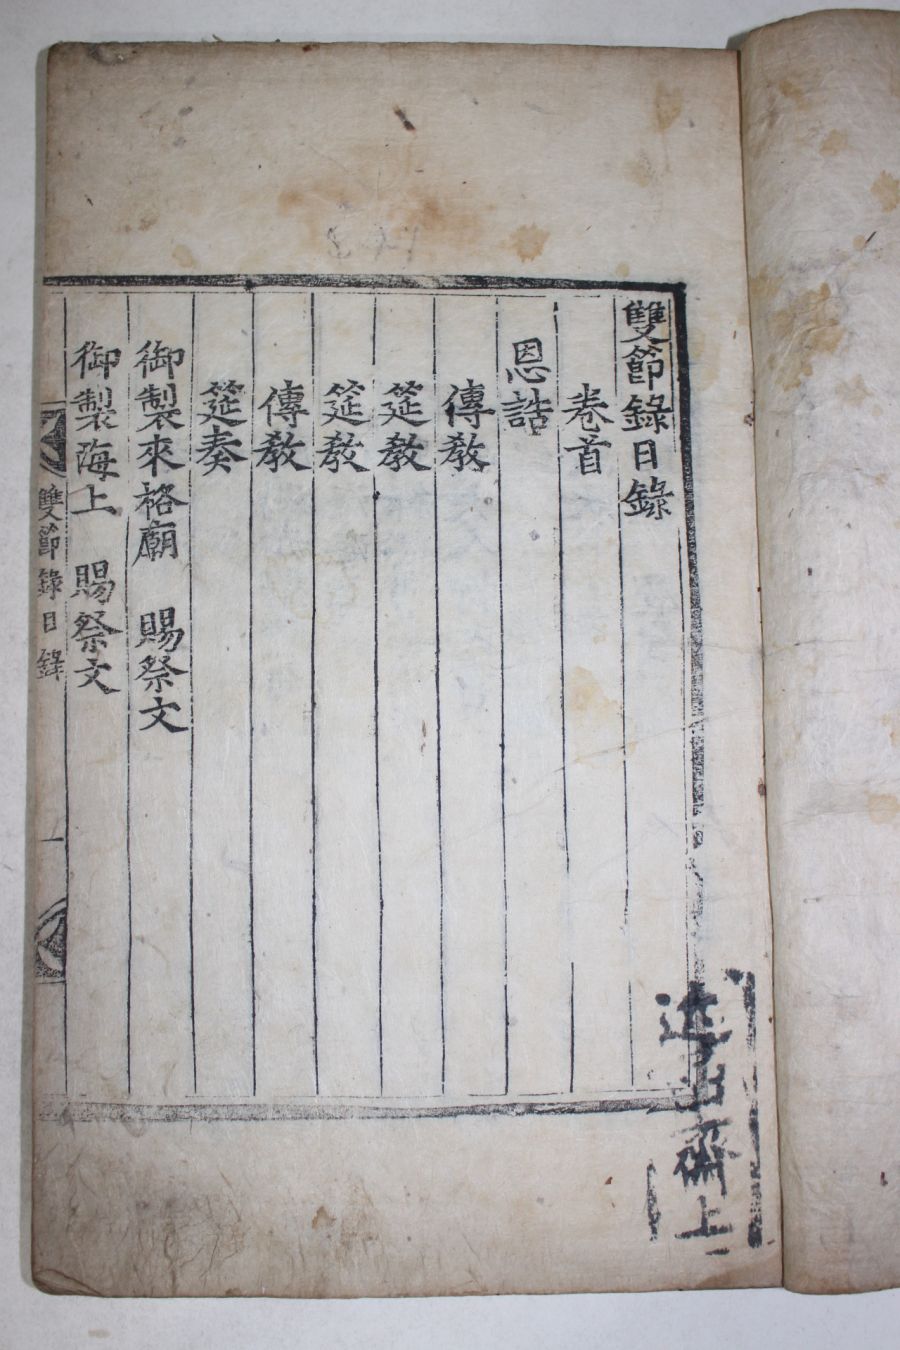 雙節錄目錄
卷首
恩誥
傳敎
筵敎
筵敎
傳敎
筵奏
御製來格廟　賜祭文
御製海上　賜祭文
雙節錄目錄
一
齋上